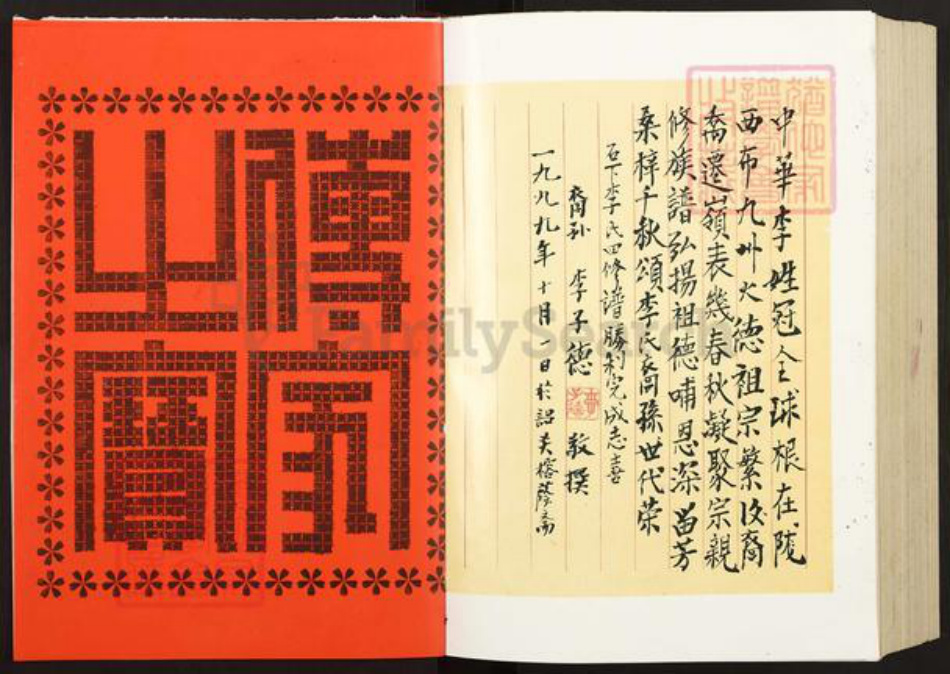 傳家
之寶
中華李姓冠全球根在隴
西布九州火德祖宗繁後裔
喬遷嶺表幾春秋凝聚宗親
修族譜弘揚祖德哺恩深留芳
桑梓千秋頌李氏裔孫世代榮
石下李氏四修譜勝利完成志喜
裔孫 李子德 敬撰
一九九九年十月一日於
FamilySearch